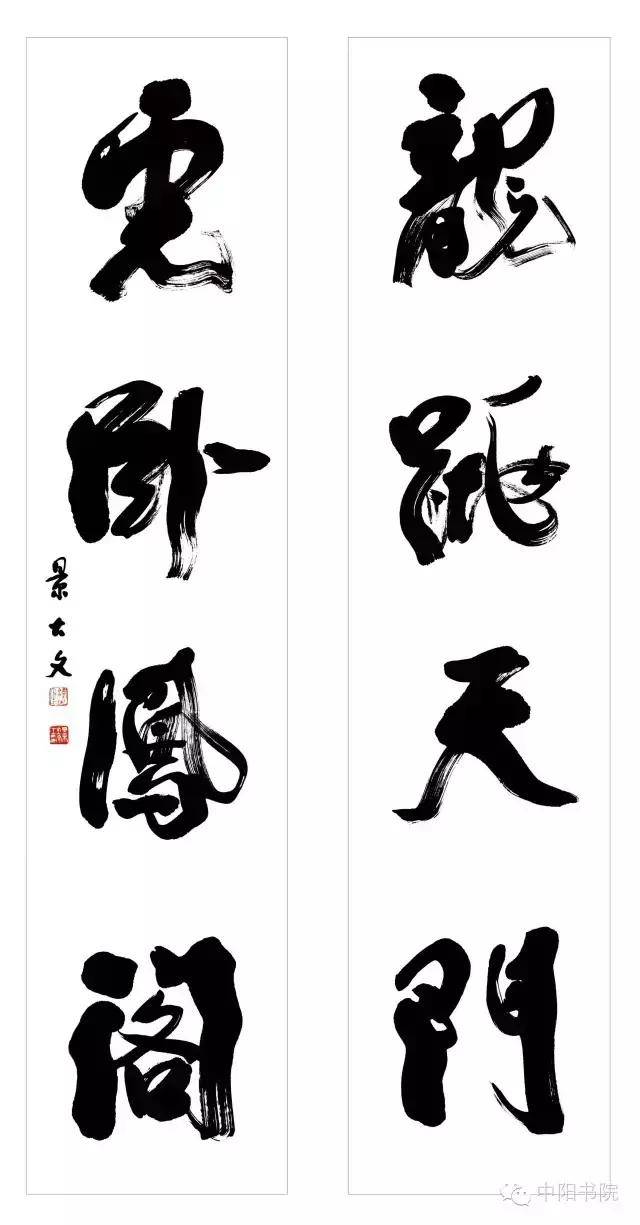 龍跳天門
虎卧鳳阁
景大文
中阳书院